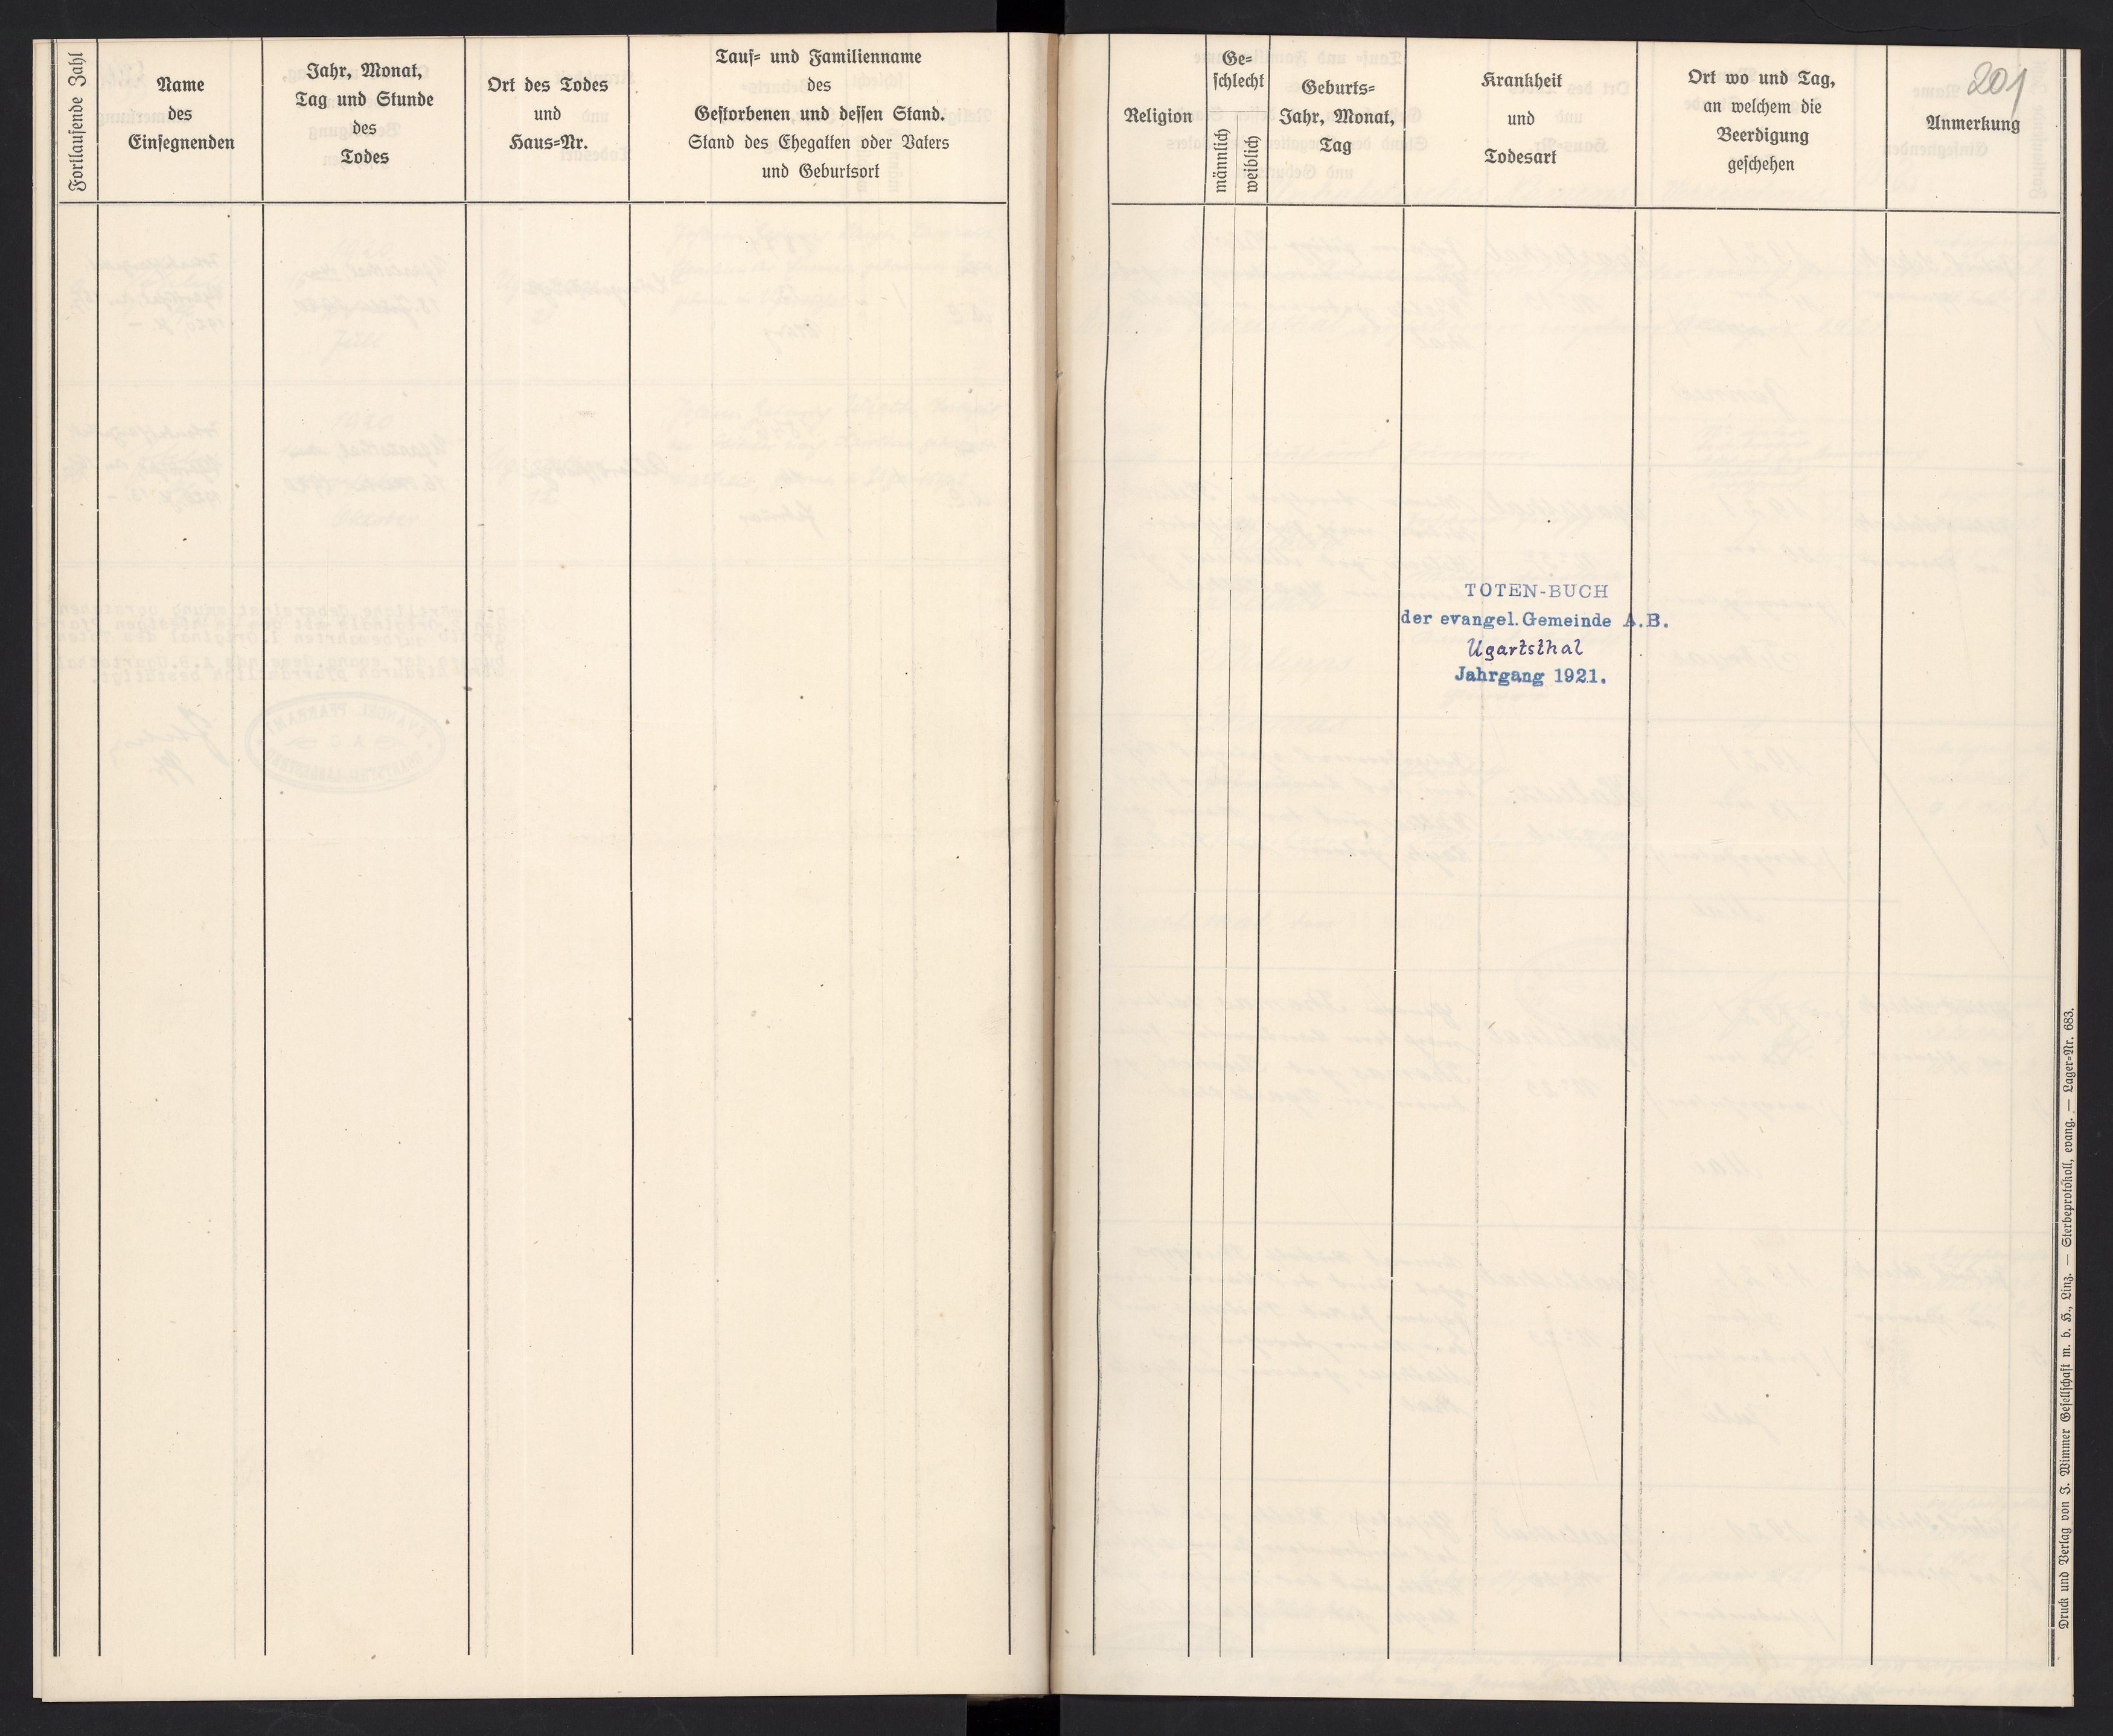 Fortlaufende Zahl
Name
des
Einsegnenden
Jahr, Monat,
Tag und Stunde
des
Todes
Ort des Todes
und
Haus-Nr.
Tauf- und Familienname
des
Gestorbenen und dessen Stand.
Stand des Ehegatten oder Vaters
und Geburtsort
Religion
Ge-
schlecht
männlich
weiblich
Geburts-
Jahr, Monat,
Tag
Krankheit
und
Todesart
Ort wo und Tag,
an welchem die
Beerdigung
geschehen
201
Anmerkung
TOTEN-BUCH
der evangel. Gemeinde A.B.
Ugartsthal
Jahrgang 1921.
Druck und Verlag von J. Wimmer Gesellschaft m. b. H., Linz. — Sterbeprotokoll, evang. — Lager-Nr. 683.